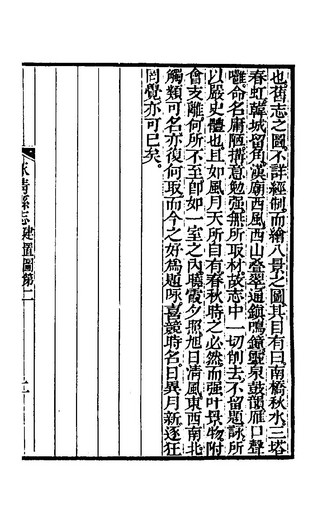 也舊志之圖不詳經制而繪八景之圖其目有曰南橋秋水三塔
春虹韓城留角漢廟西風西山疊翠通鎮鳴鐘靈泉鼓韻雁口聲
嘹命名庸陋搆意勉强無所取材故志中一切削去不留題詠所
以嚴史體也且如風月天所自有春秋時之必然而强叶景物附
會支離何所不至即如一室之內曉霞夕照旭日清風東西南北
觸類可名亦復何取而今之好爲題咏喜競時名日異月新逐狂
罔覺亦可已矣
永清縣志建置圖第二